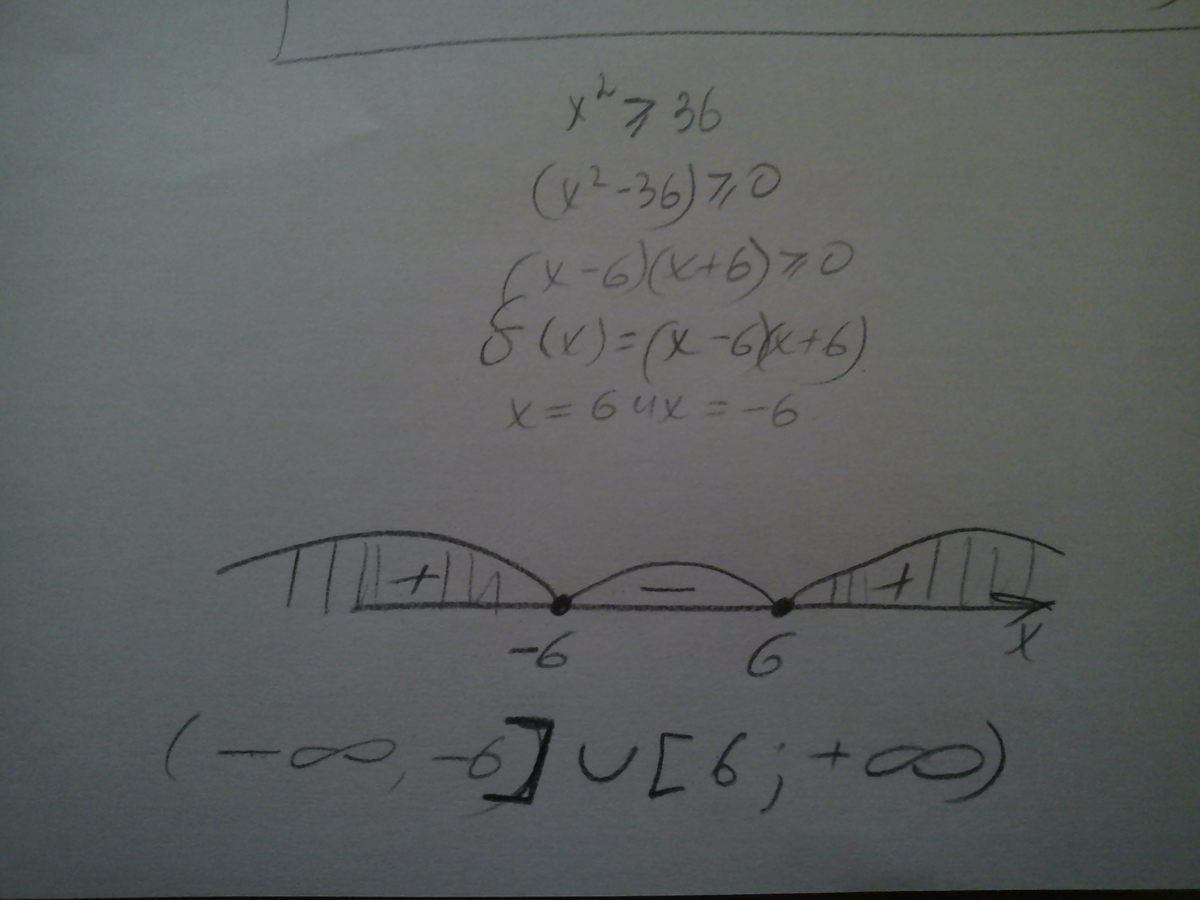 x² ⩾ 36
(x²-36)⩾0
(x-6)(x+6)⩾0
f(x)=(x-6)(x+6)
x=6 и x=-6
+ − +
-6 6 x
(-∞; -6]∪[6; +∞)